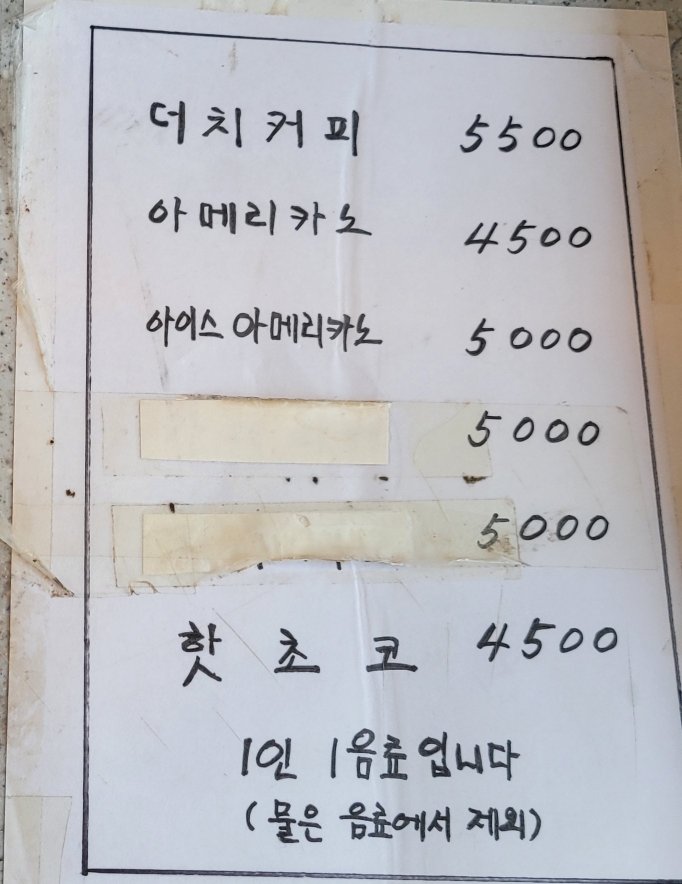 더치커피 5500
아메리카노 4500
아이스 아메리카노 5000
5000
5000
핫초코 4500
1인 1음료입니다
(물은 음료에서 제외)